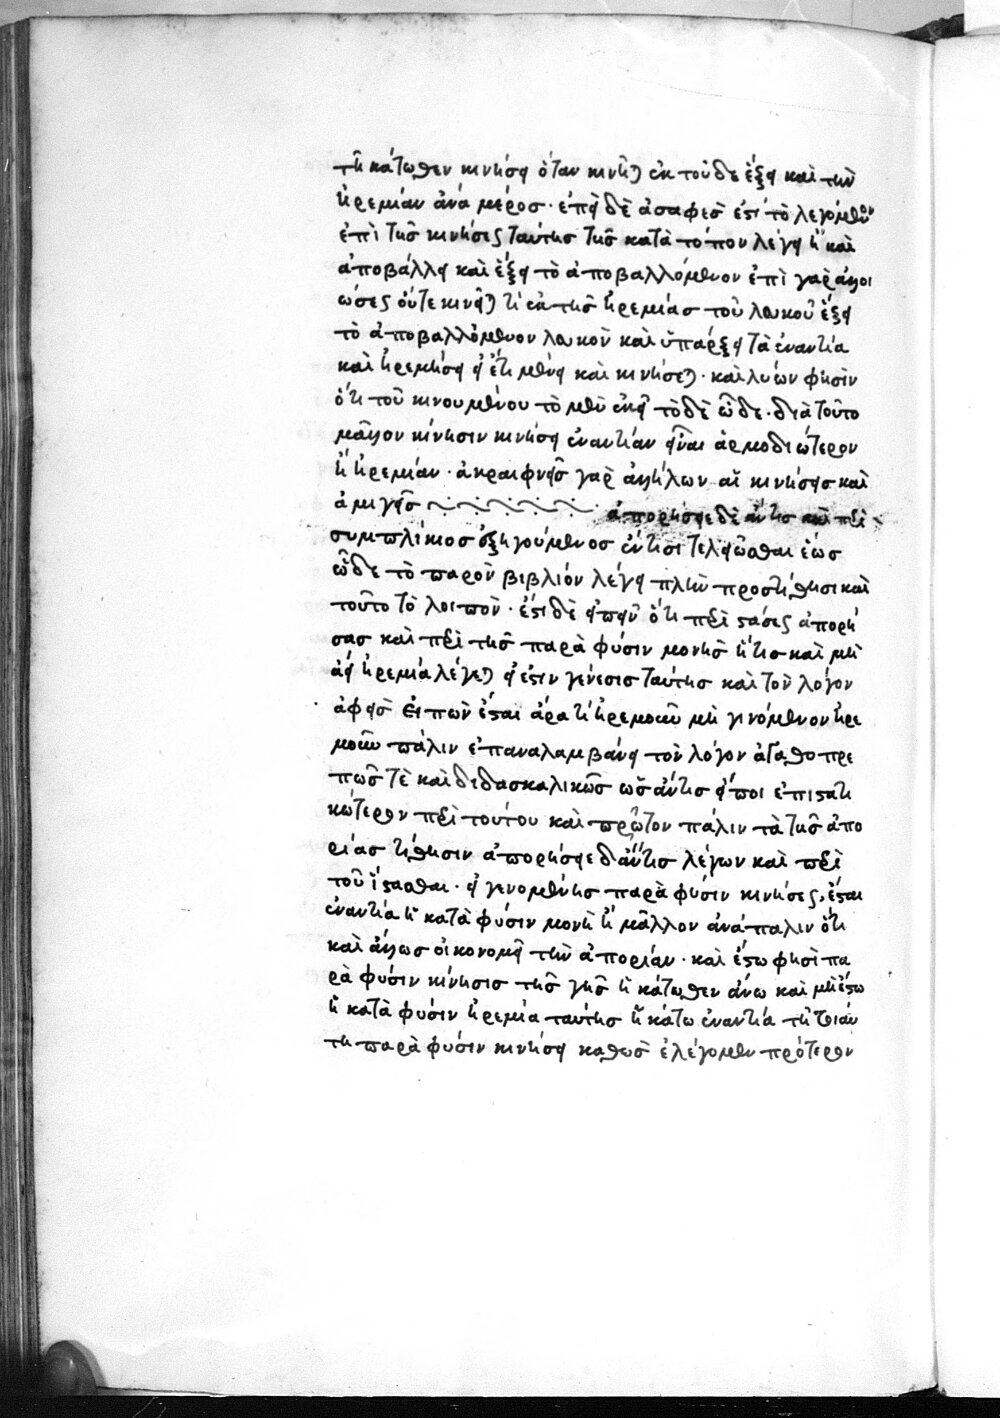 τῇ κάτωθεν κινήσει ὅταν κινῆται ἐκ τοῦδε ἕξει καὶ τὴν
ἠρεμίαν ἀνὰ μέρος· ἐπεὶ δὲ ἀσαφὲς ἐστὶ τὸ λεγόμενον
ἐπὶ τῆς κινήσεως ταύτης τῆς κατὰ τόπον λέγει ἢ καὶ
ἀποβάλλει καὶ ἕξει τὸ ἀποβαλλόμενον ἐπὶ γὰρ ἀλλοι
ώσεως ὅτε κινεῖται τὶ ἐκ τῆς ἠρεμίας τοῦ λευκοῦ ἕξει
τὸ ἀποβαλλόμενον λευκὸν καὶ ὑπάρξει τὰ ἐναντία
καὶ ἠρεμήσει εἰ ἔτι μένει καὶ κινήσεται· καὶ λύων φησὶν
ὅτι τοῦ κινουμένου τὸ μὲν ἐκεῖ τὸ δὲ ὧδε· διὰ τοῦτο
μᾶλλον κίνησιν κινήσει ἐναντίαν εἶναι ἁρμοδιώτερον
ἢ ἠρεμίαν· ἀκραιφνεῖς γὰρ ἀλλήλων αἱ κινήσεις καὶ
ἀμιγεῖς ἀπορήσειε δὲ ἄν τις καὶ περὶ
συμπλίκιος ἐξηγούμενος ἐν τισὶ τελειοῦσθαι ἕως
ὧδε τὸ παρὸν βιβλίον λέγει πλὴν προστίθησι καὶ
τοῦτο τὸ λοιπόν· ἔστι δὲ εἰπεῖν ὅτι περὶ στάσεως ἀπορή
σας καὶ περὶ τῆς παρὰ φύσιν μονῆς ἥτις καὶ μὴ
ἀεὶ ἠρεμία λέγεται εἰ ἔστιν γένεσις ταύτης καὶ τὸν λόγον
ἀφεὶς εἰπὼν ἔσται ἄρα τὶ ἠρεμοῦν μὴ γινόμενον ἠρε
μοῦν πάλιν ἐπαναλαμβάνει τὸν λόγον ἀγαθοπρε
πῶς τὲ καὶ διδασκαλικῶς ὡς ἄν τις εἴποι ἐπιστατι
κώτερον περὶ τούτου καὶ πρῶτον πάλιν τὰ τῆς ἀπο
ρίας τίθησιν ἀπορήσειε δ' ἄν τις λέγων καὶ περὶ
τοῦ ἵστασθαι· εἰ γενομένης παρὰ φύσιν κινήσεως, ἔσται
ἐναντία ἡ κατὰ φύσιν μονὴ ἢ μᾶλλον ἀνάπαλιν ὅτι
καὶ ἄλλως οἰκονομεῖ τὴν ἀπορίαν· καὶ ἔστω φησὶ πα
ρὰ φύσιν κίνησις τῆς γῆς ἡ κάτωθεν ἄνω καὶ μὴ ἔστω
ἡ κατὰ φύσιν ἠρεμία ταύτης ἡ κάτω ἐναντία τῇ
τῇ παρὰ φύσιν κινήσει καθὼς ἐλέγομεν πρότερον